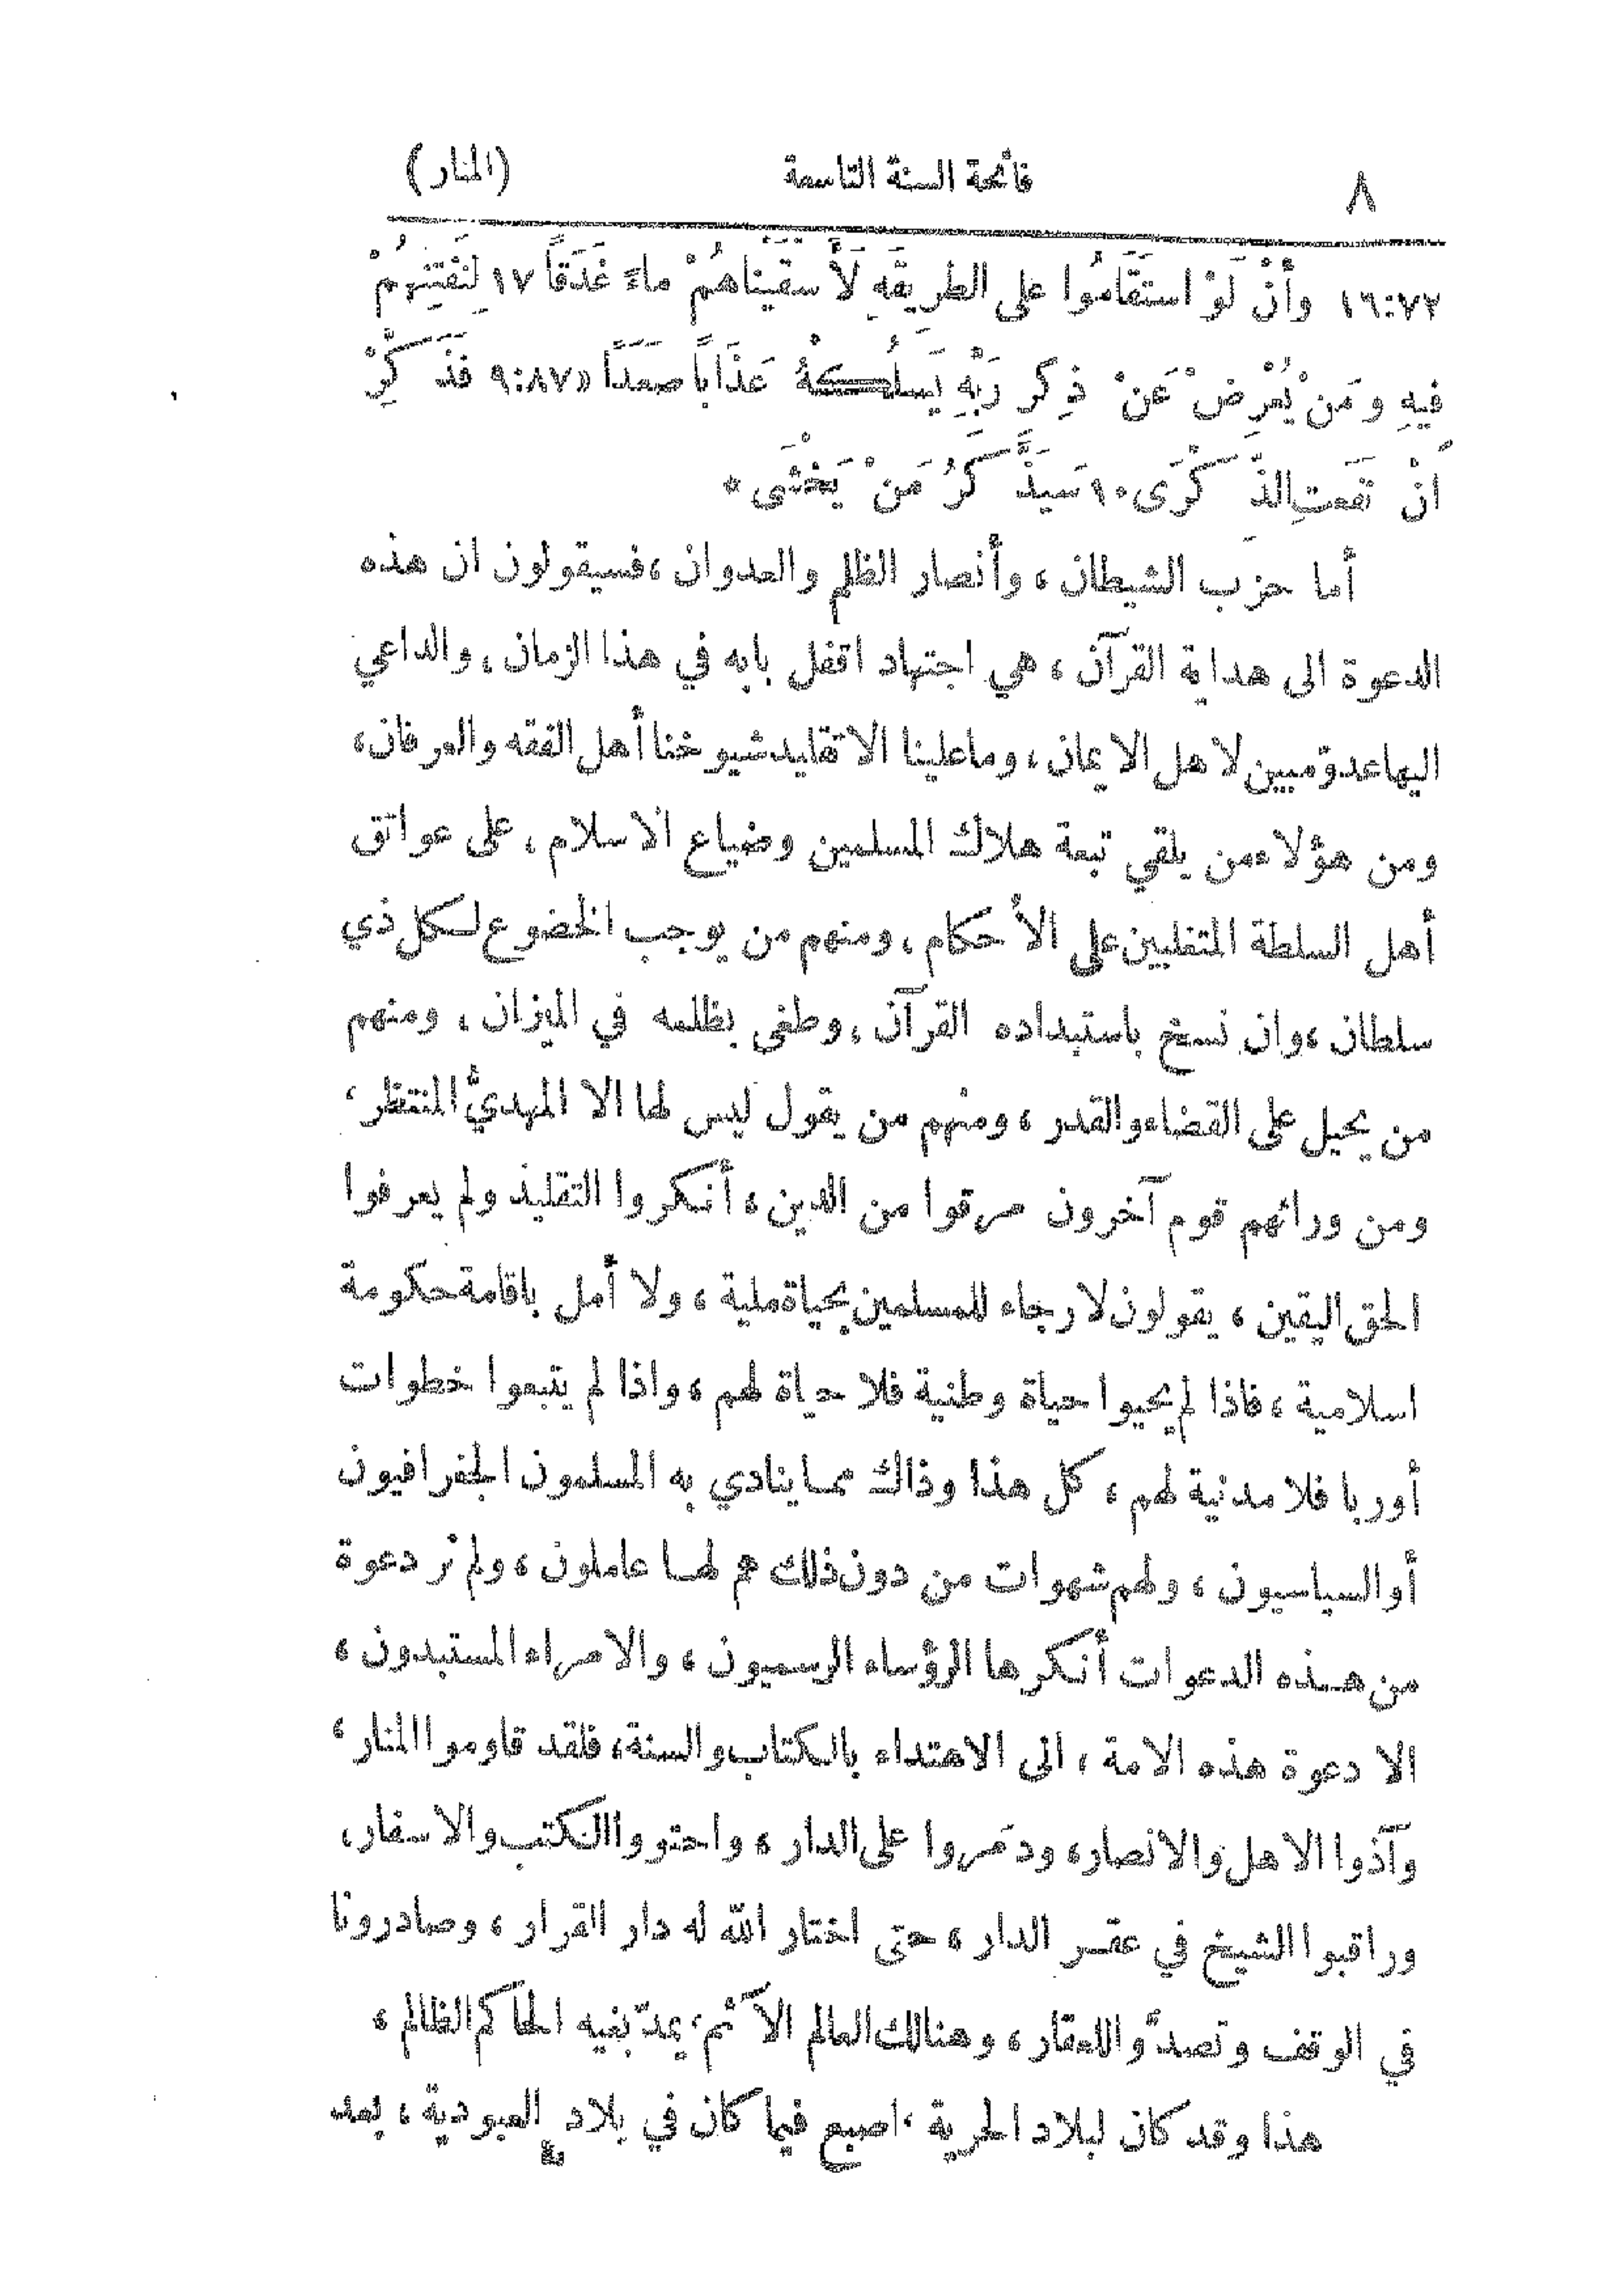 ٨ فاتحة السنة التاسعة (المنار)
١٦:٧٢ وأنْ لَوْ استَقَامُوا على الطريقَةِ لَأَسقَيْنَاهُمْ ماءً غَدَقاً ١٧ لِنَفْتِنَهُمْ
فيهِ ومَنْ يُعْرِضْ عَنْ ذِكر رَبِّهِ يَسلُكْهُ عَذَاباً صَعَدَاً «٩:٨٧ فَذَكِّرْ
إِنْ نَفَعت الذِّكْرَى ١٠ سَيَذَّكَّرُ مَنْ يَخْشَى *
أما حزب الشيطان ، وأنصار الظلم والعدوان ، فسيقولون ان هذه
الدعوة الى هداية القرآن ، هي اجتهاد اقفل بابه في هذا الزمان ، والداعي
اليها عدو مبين لاهل الايمان ، وما علينا الا تقليد شيوخنا أهل الفقه والعرفان ،
ومن هؤلاء من يلقي تبعة هلاك المسلمين وضياع الاسلام ، على عواتق
أهل السلطة المتغلبين على الأحكام ، ومنهم من يوجب الخضوع لكل ذي
سلطان ، وان نسخ باستبداده القرآن ، وطغى بظلمه في الميزان ، ومنهم
من يحيل على القضاء والقدر ، ومنهم من يقول ليس لها الا المهديُّ المنتظر ،
ومن ورائهم قوم آخرون مرقوا من الدين ، أنكروا التقليد ولم يعرفوا
الحق اليقين ، يقولون لا رجاء للمسلمين بحياة ملية ، ولا أمل باقامة حكومة
اسلامية ، فاذا لم يحيوا حياة وطنية فلا حياة لهم ، واذا لم يتبعوا خطوات
أوربا فلا مدنية لهم ، كل هذا وذاك مما ينادي به المسلمون الجغرافيون
أو السياسيون ، ولهم شهوات من دون ذلك هم لها عاملون ، ولم نر دعوة
من هذه الدعوات أنكرها الرؤساء الرسميون ، والامراء المستبدون ،
الا دعوة هذه الامة ، الى الاهتداء بالكتاب والسنة ، فلقد قاوموا المنار ،
وآذوا الاهل والانصار ، ودمَروا على الدار ، واحتووا الكتب والاسفار ،
وراقبوا الشيخ في عقر الدار ، حتى اختار الله له دار القرار ، وصادرونا
في الوقف وتصدَّوا للعقار ، وهنالك العالم الآثم ، يمدّ بغيه الحاكم الظالم ،
هذا وقد كان لبلاد الحرية ، اصبع فيما كان في بلاد العبودية ، بعد